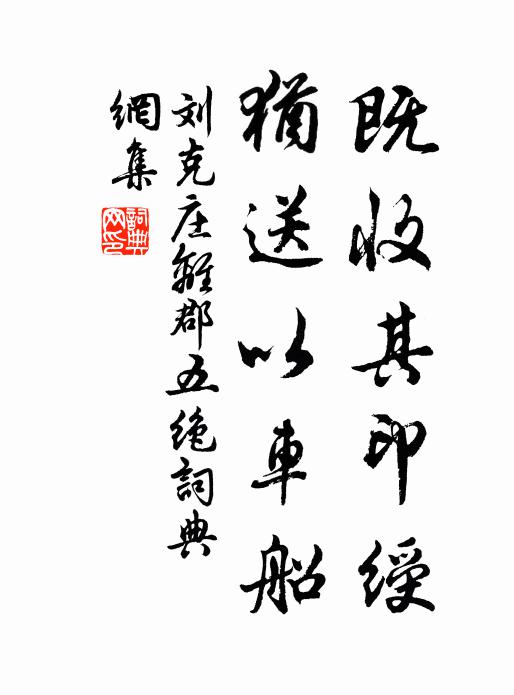 既收其印綬
猶送以車船
刘克庄離郡五绝詞典
網集
詞典
网印